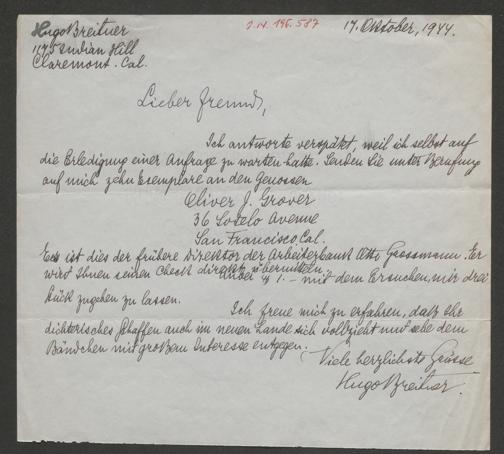 Hugo Breitner
1175 Indian Hill
Claremont. Cal.
J.N. 196.587
17. Oktober, 1944.
Lieber Freund,
Ich antworte verspätet, weil ich selbst auf
die Erledigung einer Anfrage zu warten hatte. Senden Sie unter Berufung
auf mich zehn Exemplare an den Genossen
Oliver J. Grover
36 Sotelo Avenue
San Francisco, Cal.
Es ist dies der frühere Direktor der Arbeiterbank Otto Grossmann. Er
wird Ihnen seinen Check direkt übermitteln.
Anbei $ 1.- mit dem Ersuchen, mir drei
Stück zugehen zu lassen.
Ich freue mich zu erfahren, daß Ihr
dichterisches Schaffen auch im neuen Lande sich vollzieht und sehe dem
Bändchen mit großem Interesse entgegen.
Viele herzlichste Grüsse
Hugo Breitner.